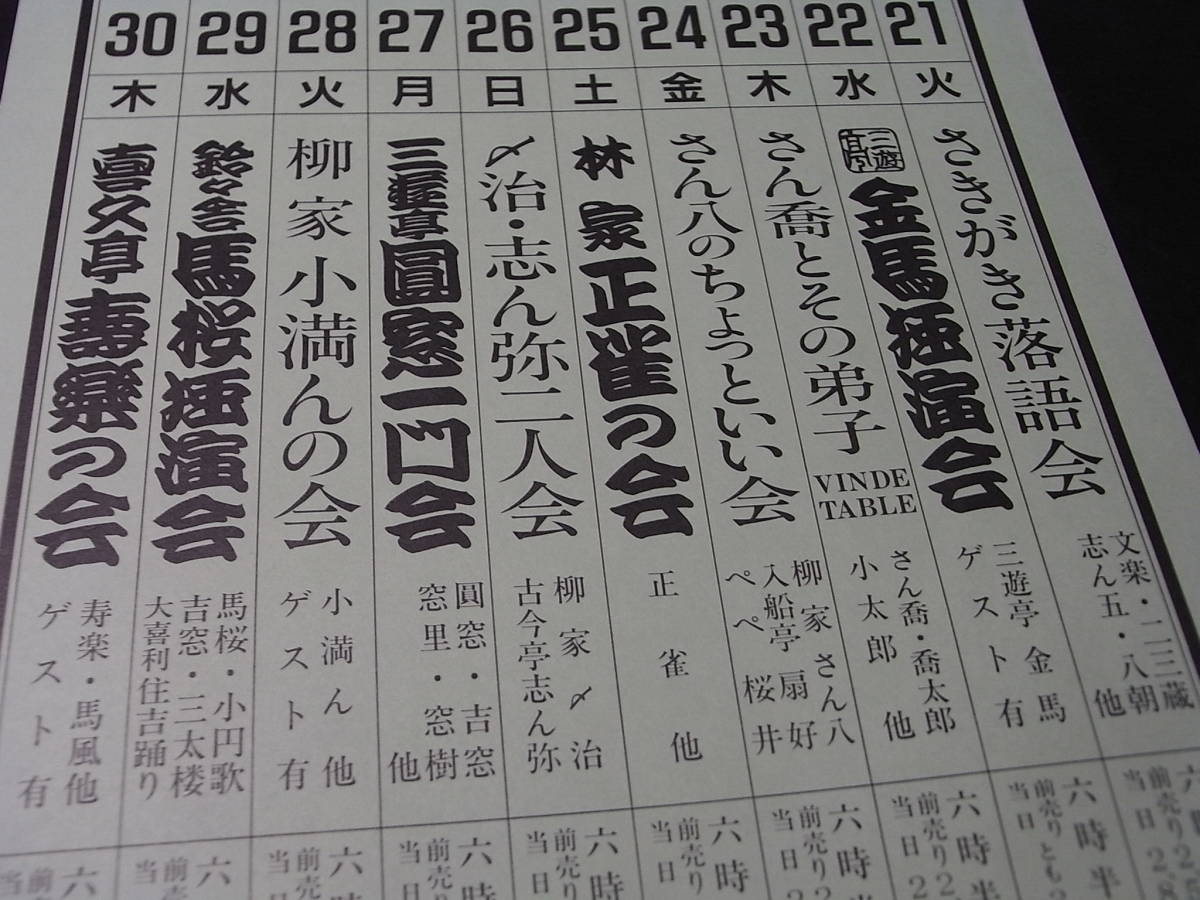 21
火
さきがき落語会
文楽・二三蔵
志ん五・八朝
他
前売り2,
当日2,8
22
水
金馬独演会
三遊亭金馬
ゲスト有
六時半
前売りとも
当日
23
木
さん喬とその弟子
VINDE
TABLE
さん喬・喬太郎
小太郎 他
六時半
前売り2
当日2
24
金
さん八のちょっといい会
柳家さん八
入船亭扇好
ペペ桜井
六時
前売り2
当日2
25
土
林家正雀の会
正雀他
六時
前売り
当日
26
日
〆治・志ん弥二人会
柳家〆治
古今亭志ん弥
六時
前売り
当日
27
月
三遊亭圓窓一門会
圓窓・吉窓
窓里・窓樹
他
六時
前売り
当日
28
火
柳家小満んの会
小満ん他
ゲスト有
六時
前売
当日
29
水
鈴々舎馬桜独演会
馬桜・小円歌
吉窓・三太楼
大喜利住吉踊り
六
前売
当日
30
木
喜久亭壽樂の会
寿楽・馬風他
ゲスト有
六
前
当